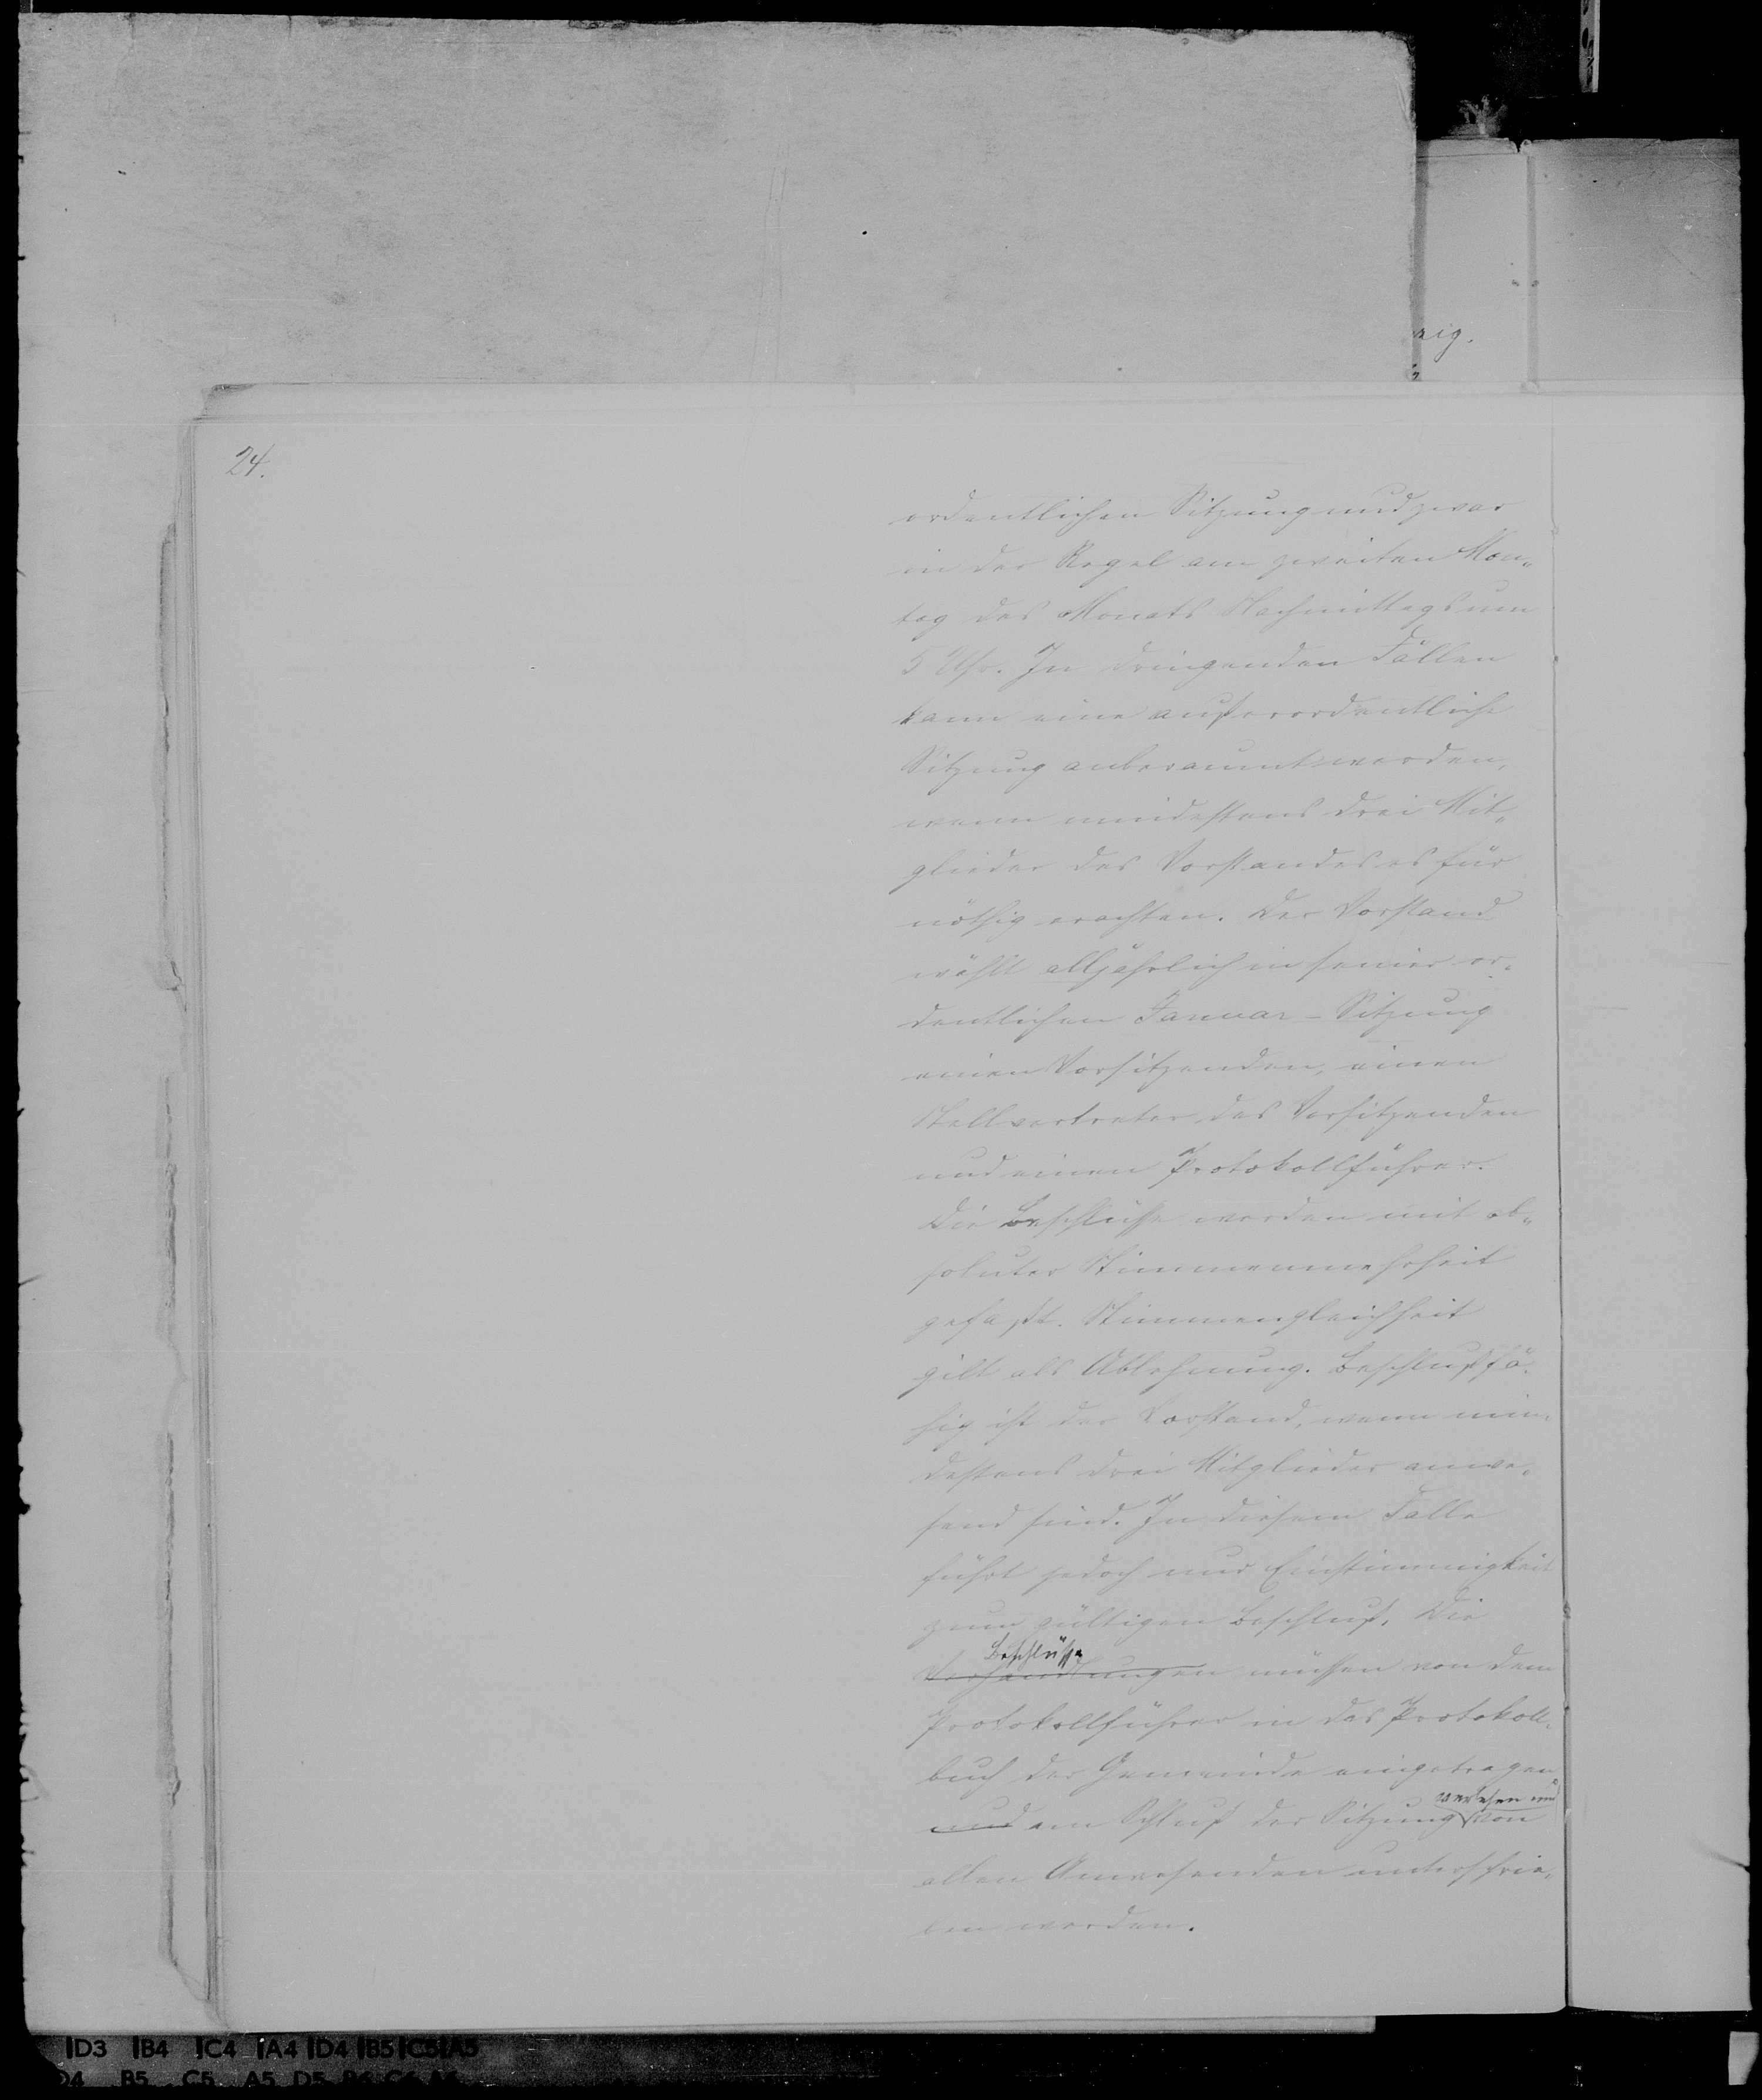 zig.
24.
ordentlichen Sitzung und zwar
in der Regel am zweiten Mon„
tag des Monats Nachmittags um
5 Uhr. In dringenden Fällen
kann eine außerordentliche
Sitzung anberaumt werden,
wenn mindestens drei Mit„
glieder des Vorstandes es für
nöthig erachten. Der Vorstand
wählt alljährlich in seiner or„
dentlichen Januar-Sitzung
einen Vorsitzenden, einen
Stellvertreter des Vorsitzenden
und einen Protokollführer.
Die Beschlüsse werden mit ab„
soluter Stimmenmehrheit
gefaßt. Stimmengleichheit
gilt als Ablehnung. Beschlußfä„
hig ist der Vorstand, wenn min„
destens drei Mitglieder anwe„
send sind. In diesem Falle
führt jedoch nur Einstimmigkeit
zum gültigen Beschluß. Die
Beschlüsse
Verhandlungen müssen von dem
Protokollführer in das Protokoll„
buch der Gemeinde eingetragen
verlesen und
und am Schluß der Sitzung von
allen Anwesenden unterschrie„
ben werden.
D3 B4 C4 A4 D4 B5 C5 A5
D4 B5 C5 A5 D5